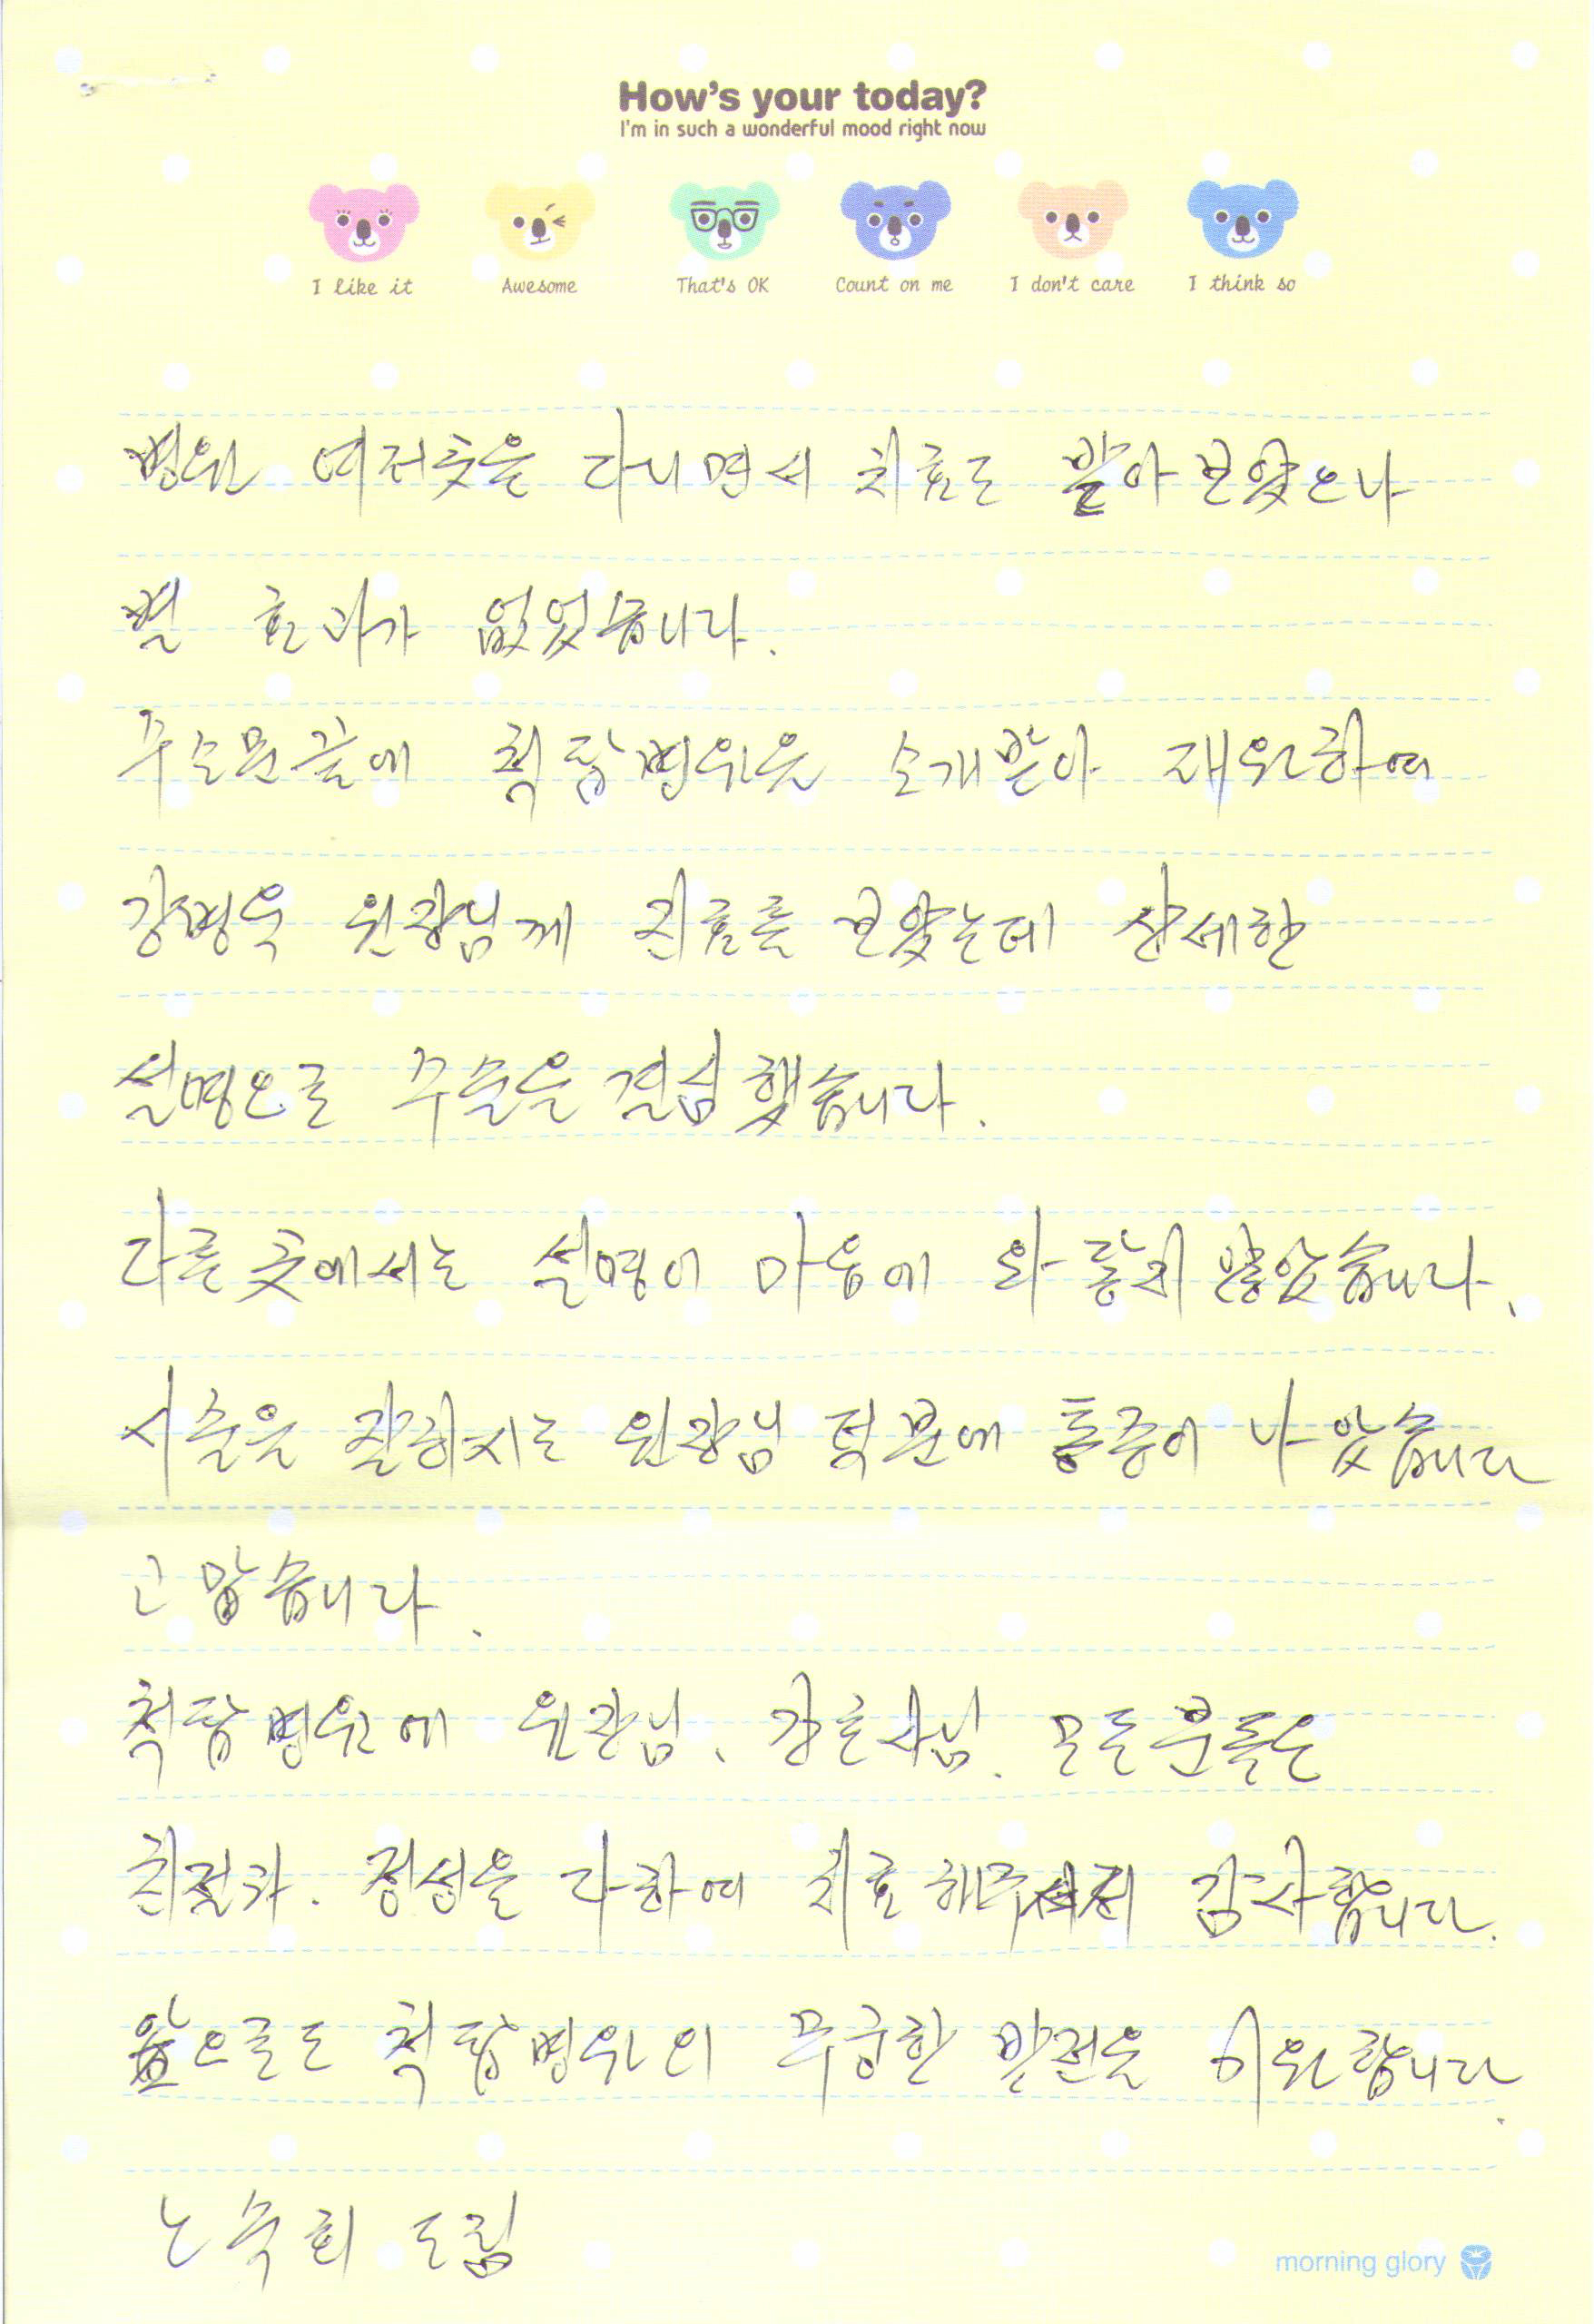 How's your today?
I'm in such a wonderful mood right now
I like it Awesome That's OK Count on me I don't care I think so
병원 여저곳을 다니면서 치료도 받아보았으나
별 효과가 없었습니다.
수소문끝에 척탑병원을 소개받아 내원하여
강병욱 원장님께 진료를 보았는데 상세한
설명으로 수술을 결심했습니다.
다른곳에서는 설명이 마음에 와닿지 않았습니다.
시술을 잘하시는 원장님 덕분에 통증이 나았습니다
고맙습니다.
척탑병원에 원장님, 간호사님. 모든분들은
친절과. 정성을 다하여 치료해주셔서 감사합니다.
앞으로도 척탑병원의 무궁한 발전을 기원합니다.
노숙희 드림
morning glory